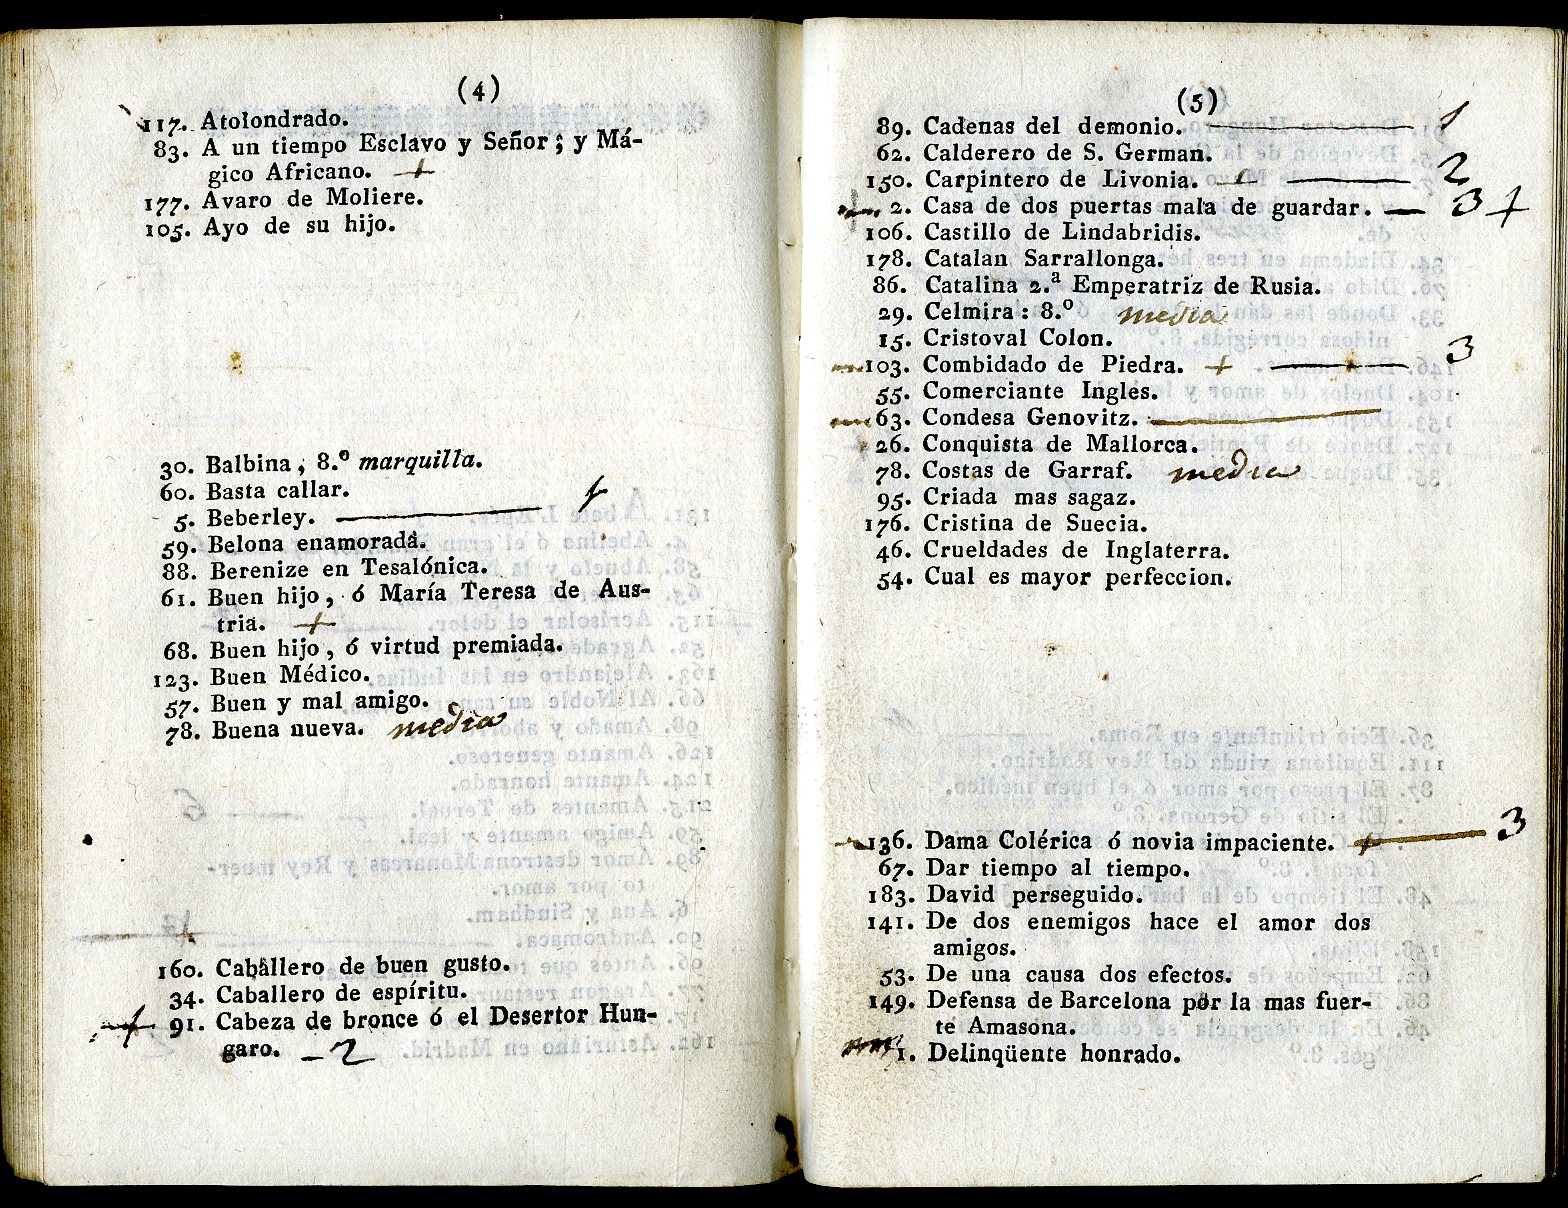 (4)
117. Atolondrado.
83. A un tiempo Esclavo y Señor; y Má-
gico Africano. +
177. Avaro de Moliere.
105. Ayo de su hijo.
30. Balbina, 8.º marquilla.
60. Basta callar.
5. Beberley. — 1
59. Belona enamorada.
88. Berenize en Tesalónica.
61. Buen hijo, ó María Teresa de Aus-
tria. +
68. Buen hijo, ó virtud premiada.
123. Buen Médico.
57. Buen y mal amigo.
78. Buena nueva. media
160. Caballero de buen gusto.
34. Caballero de espíritu.
+ 91. Cabeza de bronce ó el Desertor Hun-
garo. — 2
(5)
89. Cadenas del demonio. — 1
62. Calderero de S. German.
150. Carpintero de Livonia. — 2
2. Casa de dos puertas mala de guardar. — 3 +
106. Castillo de Lindabridis.
178. Catalan Sarrallonga.
86. Catalina 2.ª Emperatriz de Rusia.
29. Celmira: 8.º media
15. Cristoval Colon.
103. Combidado de Piedra. + — 3
55. Comerciante Ingles.
63. Condesa Genovitz. —
26. Conquista de Mallorca.
78. Costas de Garraf. media
95. Criada mas sagaz.
176. Cristina de Suecia.
46. Crueldades de Inglaterra.
54. Cual es mayor perfeccion.
136. Dama Colérica ó novia impaciente. + — 3
67. Dar tiempo al tiempo.
183. David perseguido.
141. De dos enemigos hace el amor dos
amigos.
53. De una causa dos efectos.
149. Defensa de Barcelona por la mas fuer-
te Amasona.
1. Delinqüente honrado.